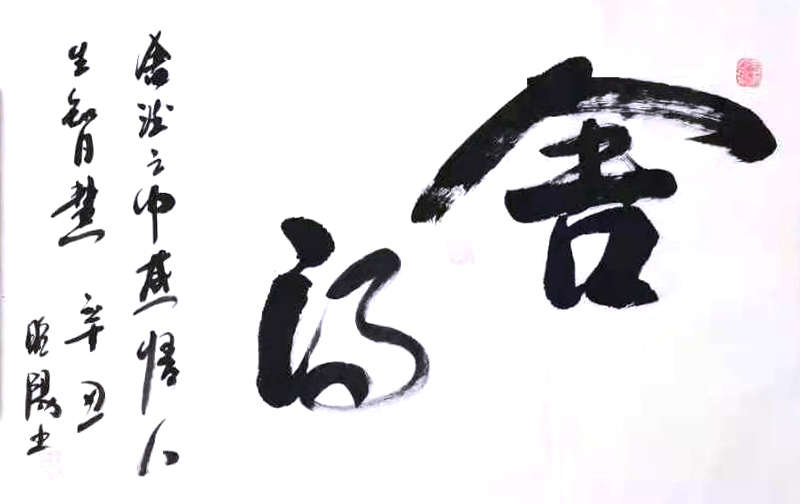 舍得
舍得之中感悟人
生智慧 辛丑
陽书